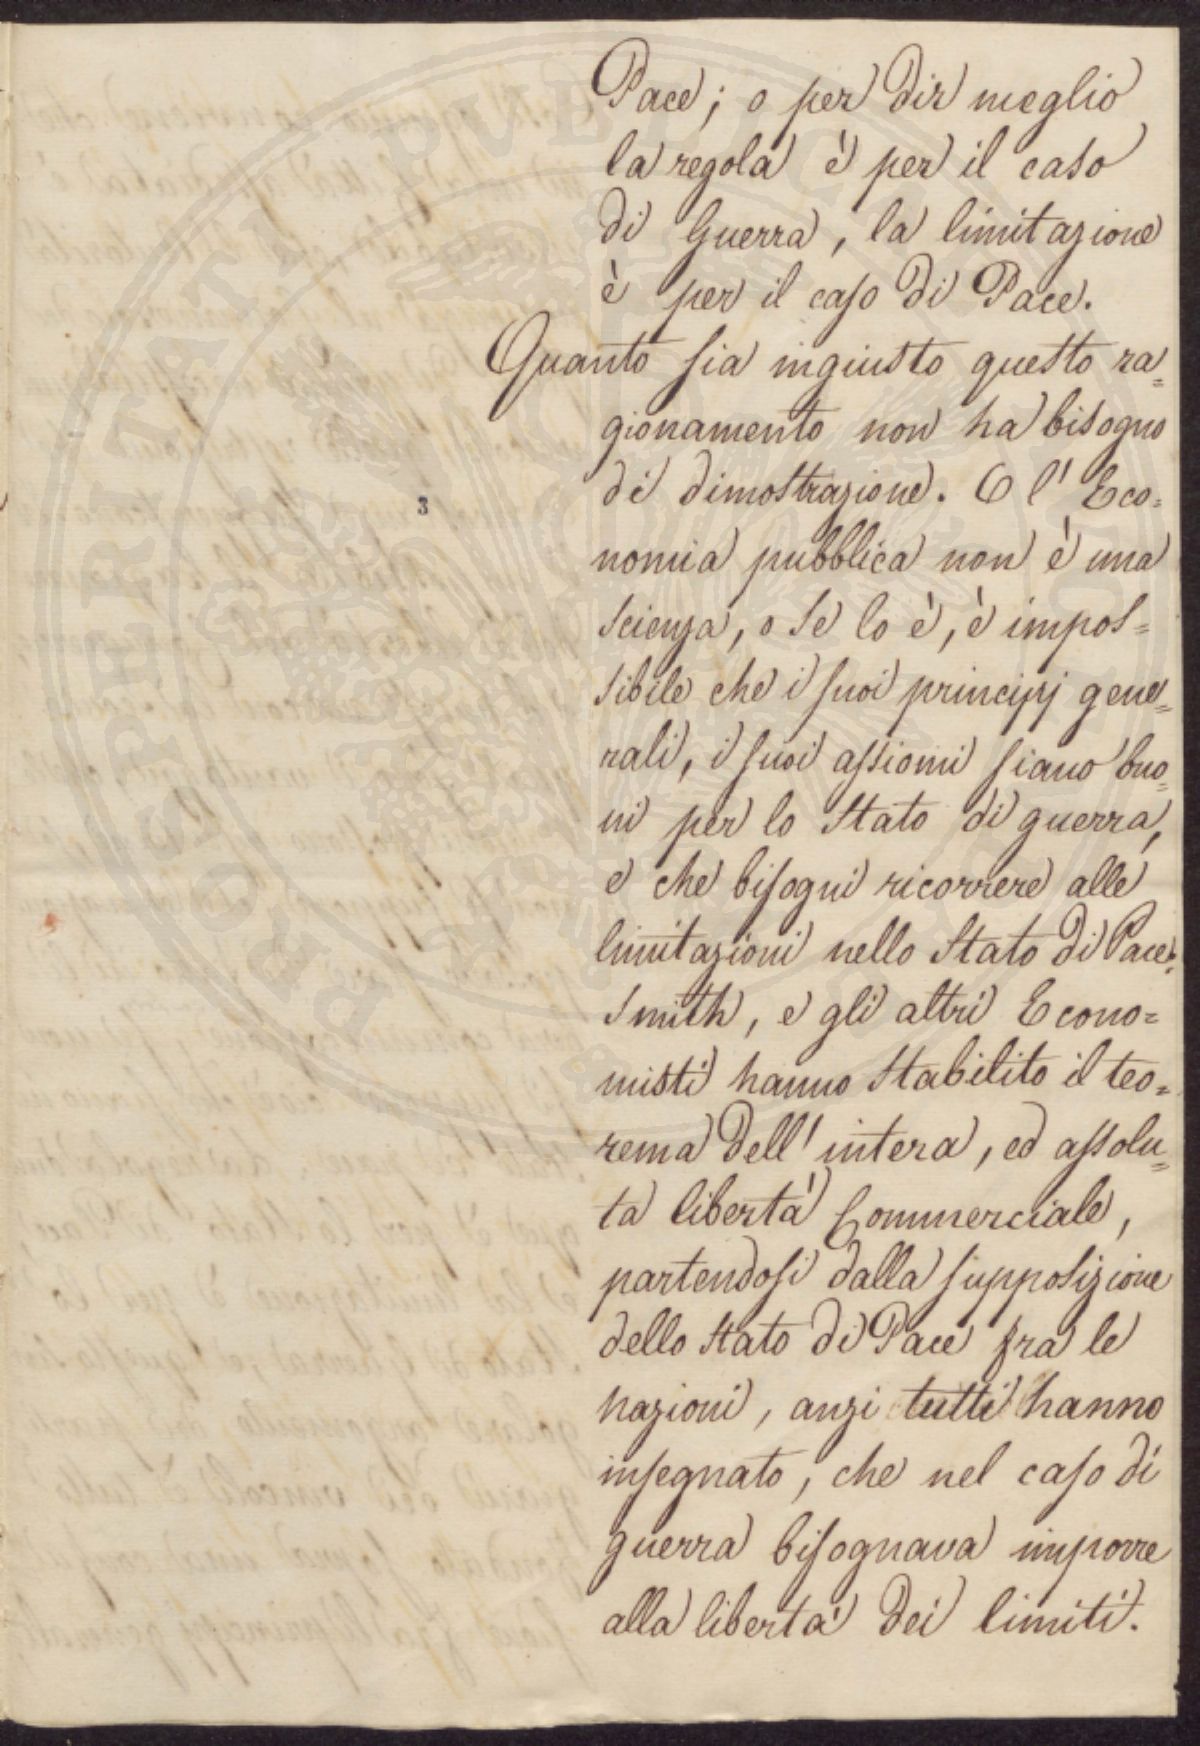 Pace; o per dir meglio
la regola è per il caso
di Guerra, la limitazione
è per il caso di Pace.
Quanto sia ingiusto questo ra=
gionamento non ha bisogno
di dimostrazione. O l' Eco=
nomia pubblica non è una
scienza, o se lo è, è impos=
sibile che i suoi principj gene=
rali, i suoi assiomi siano buo=
ni per lo Stato di guerra,
e che bisogni ricorrere alle
limitazioni nello Stato di Pace.
Smith, e gli altri Econo=
misti hanno stabilito il teo=
rema dell' intera, ed assolu=
ta libertà Commerciale,
partendosi dalla supposizione
dello Stato di Pace fra le
nazioni, anzi tutti hanno
insegnato, che nel caso di
guerra bisognava imporre
alla libertà dei limiti.
3
PROSPERITATI PVBLICAE